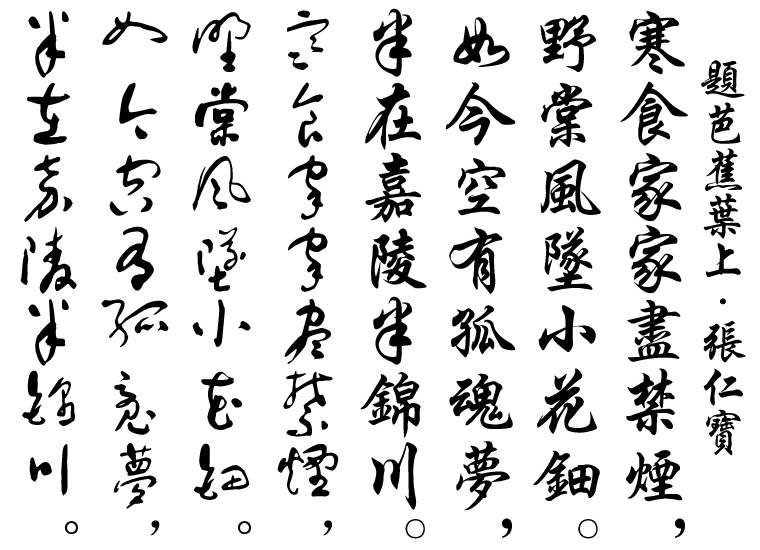 題芭蕉葉上·張仁寶
寒食家家盡禁煙，
野棠風墜小花鈿。
如今空有孤魂夢，
半在嘉陵半錦川。
寒食家家盡禁煙，
野棠風墜小花鈿。
如今空有孤魂夢，
半在嘉陵半錦川。